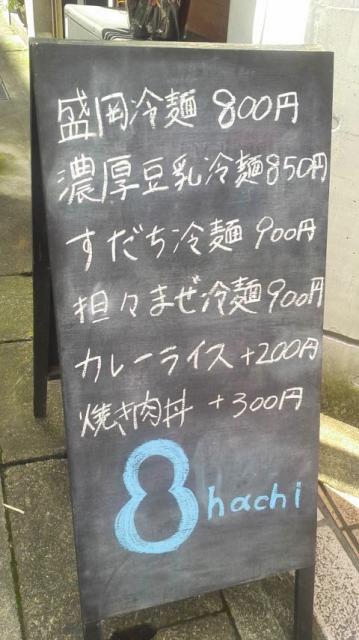 盛岡冷麺 800円
濃厚豆乳冷麺850円
すだち冷麺 900円
担々まぜ冷麺900円
カレーライス +200円
焼き肉丼 +300円
8 hachi